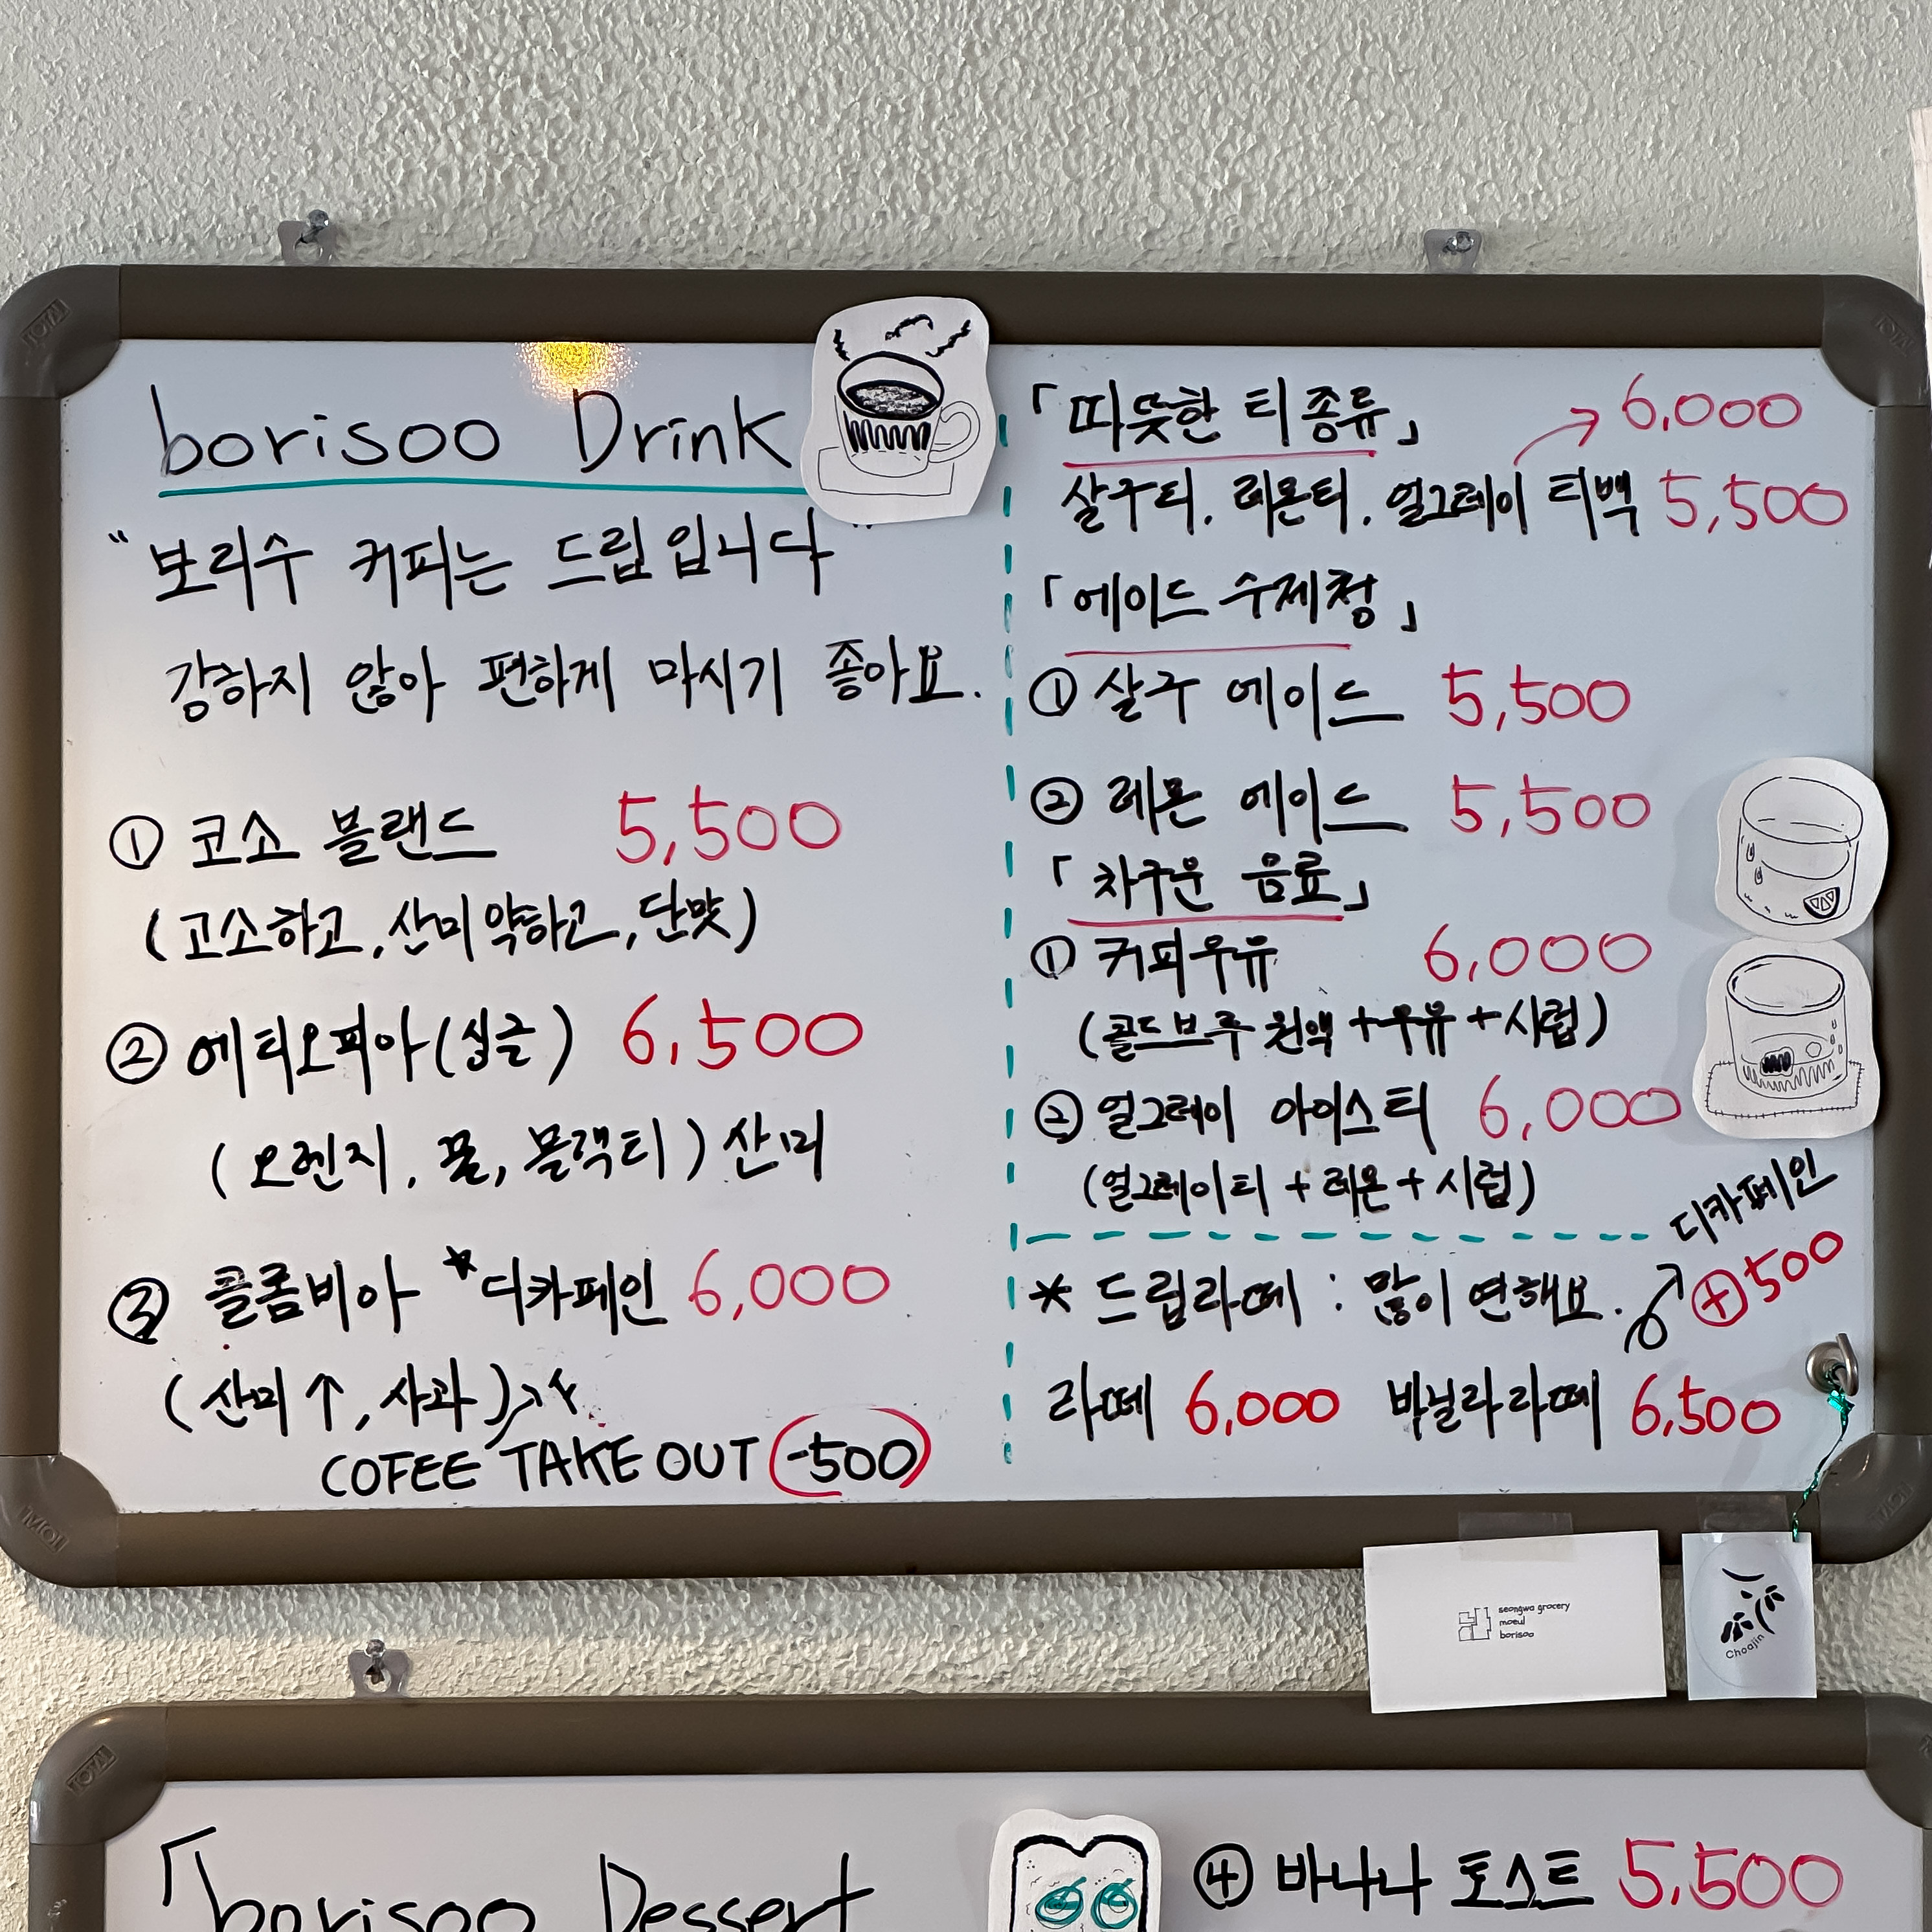 borisoo Drink
"보리수 커피는 드립입니다"
강하지 않아 편하게 마시기 좋아요.
① 코소 블랜드 5,500
(고소하고, 산미약하고, 단맛)
② 에티오피아(싱글) 6,500
(오렌지, 꿀, 블랙티) 산미
③ 콜롬비아 *디카페인 6,000
(산미↑, 사과)
COFEE TAKE OUT -500
「따뜻한 티종류」 6,000
살구티, 레몬티, 얼그레이 티백 5,500
「에이드 수제청」
① 살구 에이드 5,500
② 레몬 에이드 5,500
「차구운 음료」
① 커피우유 6,000
(콜드브루 원액+우유+시럽)
② 얼그레이 아이스티 6,000
(얼그레이티+레몬+시럽)
디카페인
⊕500
* 드립라떼 : 많이 연해요.
라떼 6,000 바닐라라떼 6,500
seongwa grocery
moeul
borisoo
Choajin
「borisoo Dessert
④ 바나나 토스트 5,500